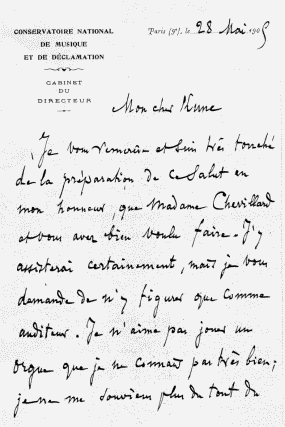 CONSERVATOIRE NATIONAL
DE MUSIQUE
ET DE DÉCLAMATION
CABINET
DU
DIRECTEUR
Paris (9e), le 28 Mai 1905
Mon cher Kunc
Je vous remercie et suis très touché
de la préparation de ce Salut en
mon honneur, que Madame Chevillard
et vous avez bien voulu faire. J'y
assisterai certainement, mais je vous
demande de n'y figurer que comme
auditeur. Je n'aime pas jouer un
orgue que je ne connais pas très bien;
je ne me souviens plus du tout du